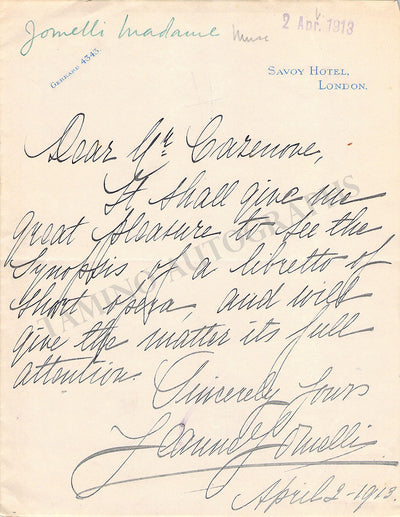 Jomelli Madame Music
2 Apr. 1913
Gerrard 4343.
Savoy Hotel,
London.
Dear Mr Cazenove,
It shall give me
great pleasure to see the
synopsis of a libretto of
short opera, and will
give the matter its full
attention.
Sincerely yours
Jeanne Jomelli.
April 2-1913.
TAMINO AUTOGRAPHS